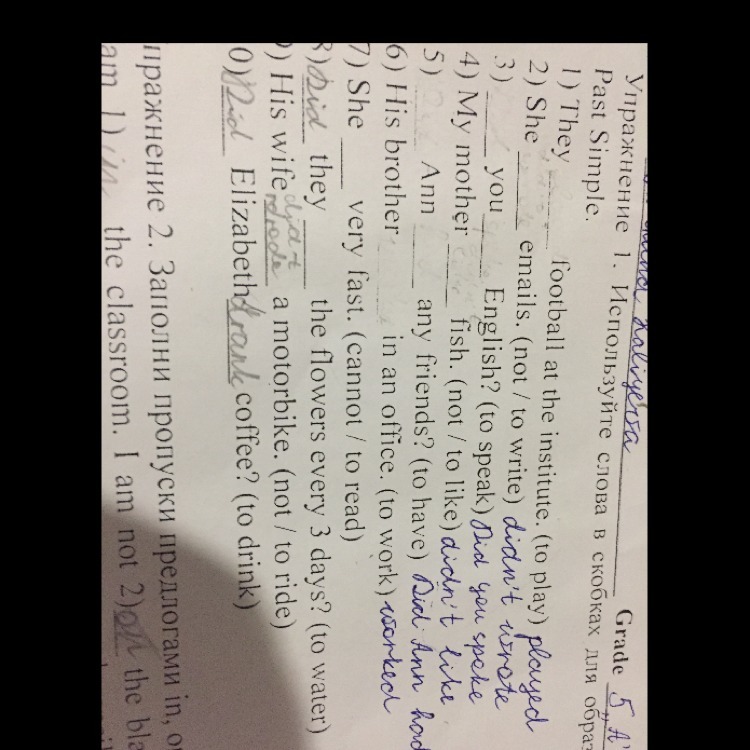 Kaliyeva Grade 5 "A
Упражнение 1. Используйте слова в скобках для образ
Past Simple.
1) They ______ football at the institute. (to play) played
2) She ______ emails. (not / to write) didn't wrote
3) ____ you ____ English? (to speak) Did you spoke
4) My mother ____ fish. (not / to like) didn't like
5) ____ Ann ____ any friends? (to have) Did Ann had
6) His brother ____ in an office. (to work) worked
7) She ____ very fast. (cannot / to read)
8) Did they ______ the flowers every 3 days? (to water)
9) His wife didn't rode a motorbike. (not / to ride)
0) Did Elizabeth drank coffee? (to drink)
пражнение 2. Заполни пропуски предлогами in, o
am 1) in the classroom. I am not 2) on the bla